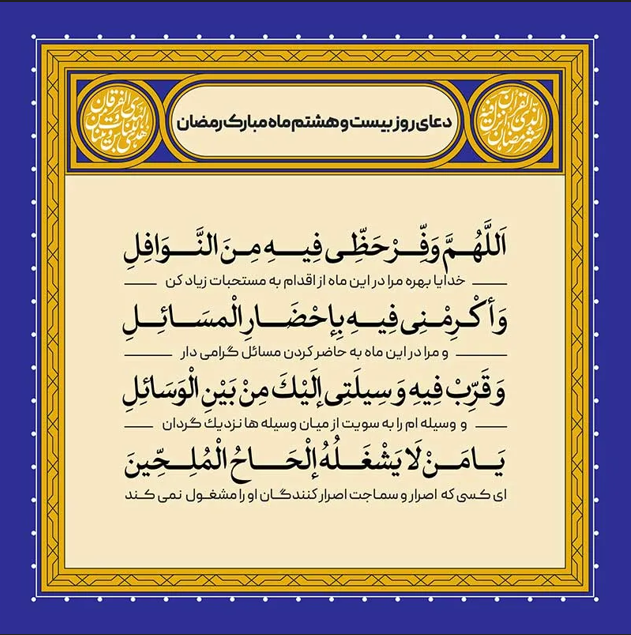 دعای روز بیست و هشتم ماه مبارک رمضان
شهر رمضان الذی انزل فیه القرآن
هدی للناس و بینات من الهدی و الفرقان
اَللَّهُمَّ وَفِّرْ حَظِّی فِیهِ مِنَ النَّوَافِلِ
خدایا بهره مرا در این ماه از اقدام به مستحبات زیاد کن
وَأَکْرِمْنِی فِیهِ بِإِحْضَارِ الْمَسَائِلِ
و مرا در این ماه به حاضر کردن مسائل گرامی دار
وَقَرِّبْ فِیهِ وَسِیلَتِی إِلَیْكَ مِنْ بَیْنِ الْوَسَائِلِ
و وسیله ام را به سویت از میان وسیله ها نزدیك گردان
یَا مَنْ لَا یَشْغَلُهُ إِلْحَاحُ الْمُلِحِّینَ
ای کسی که اصرار و سماجت اصرار کنندگان او را مشغول نمی کند